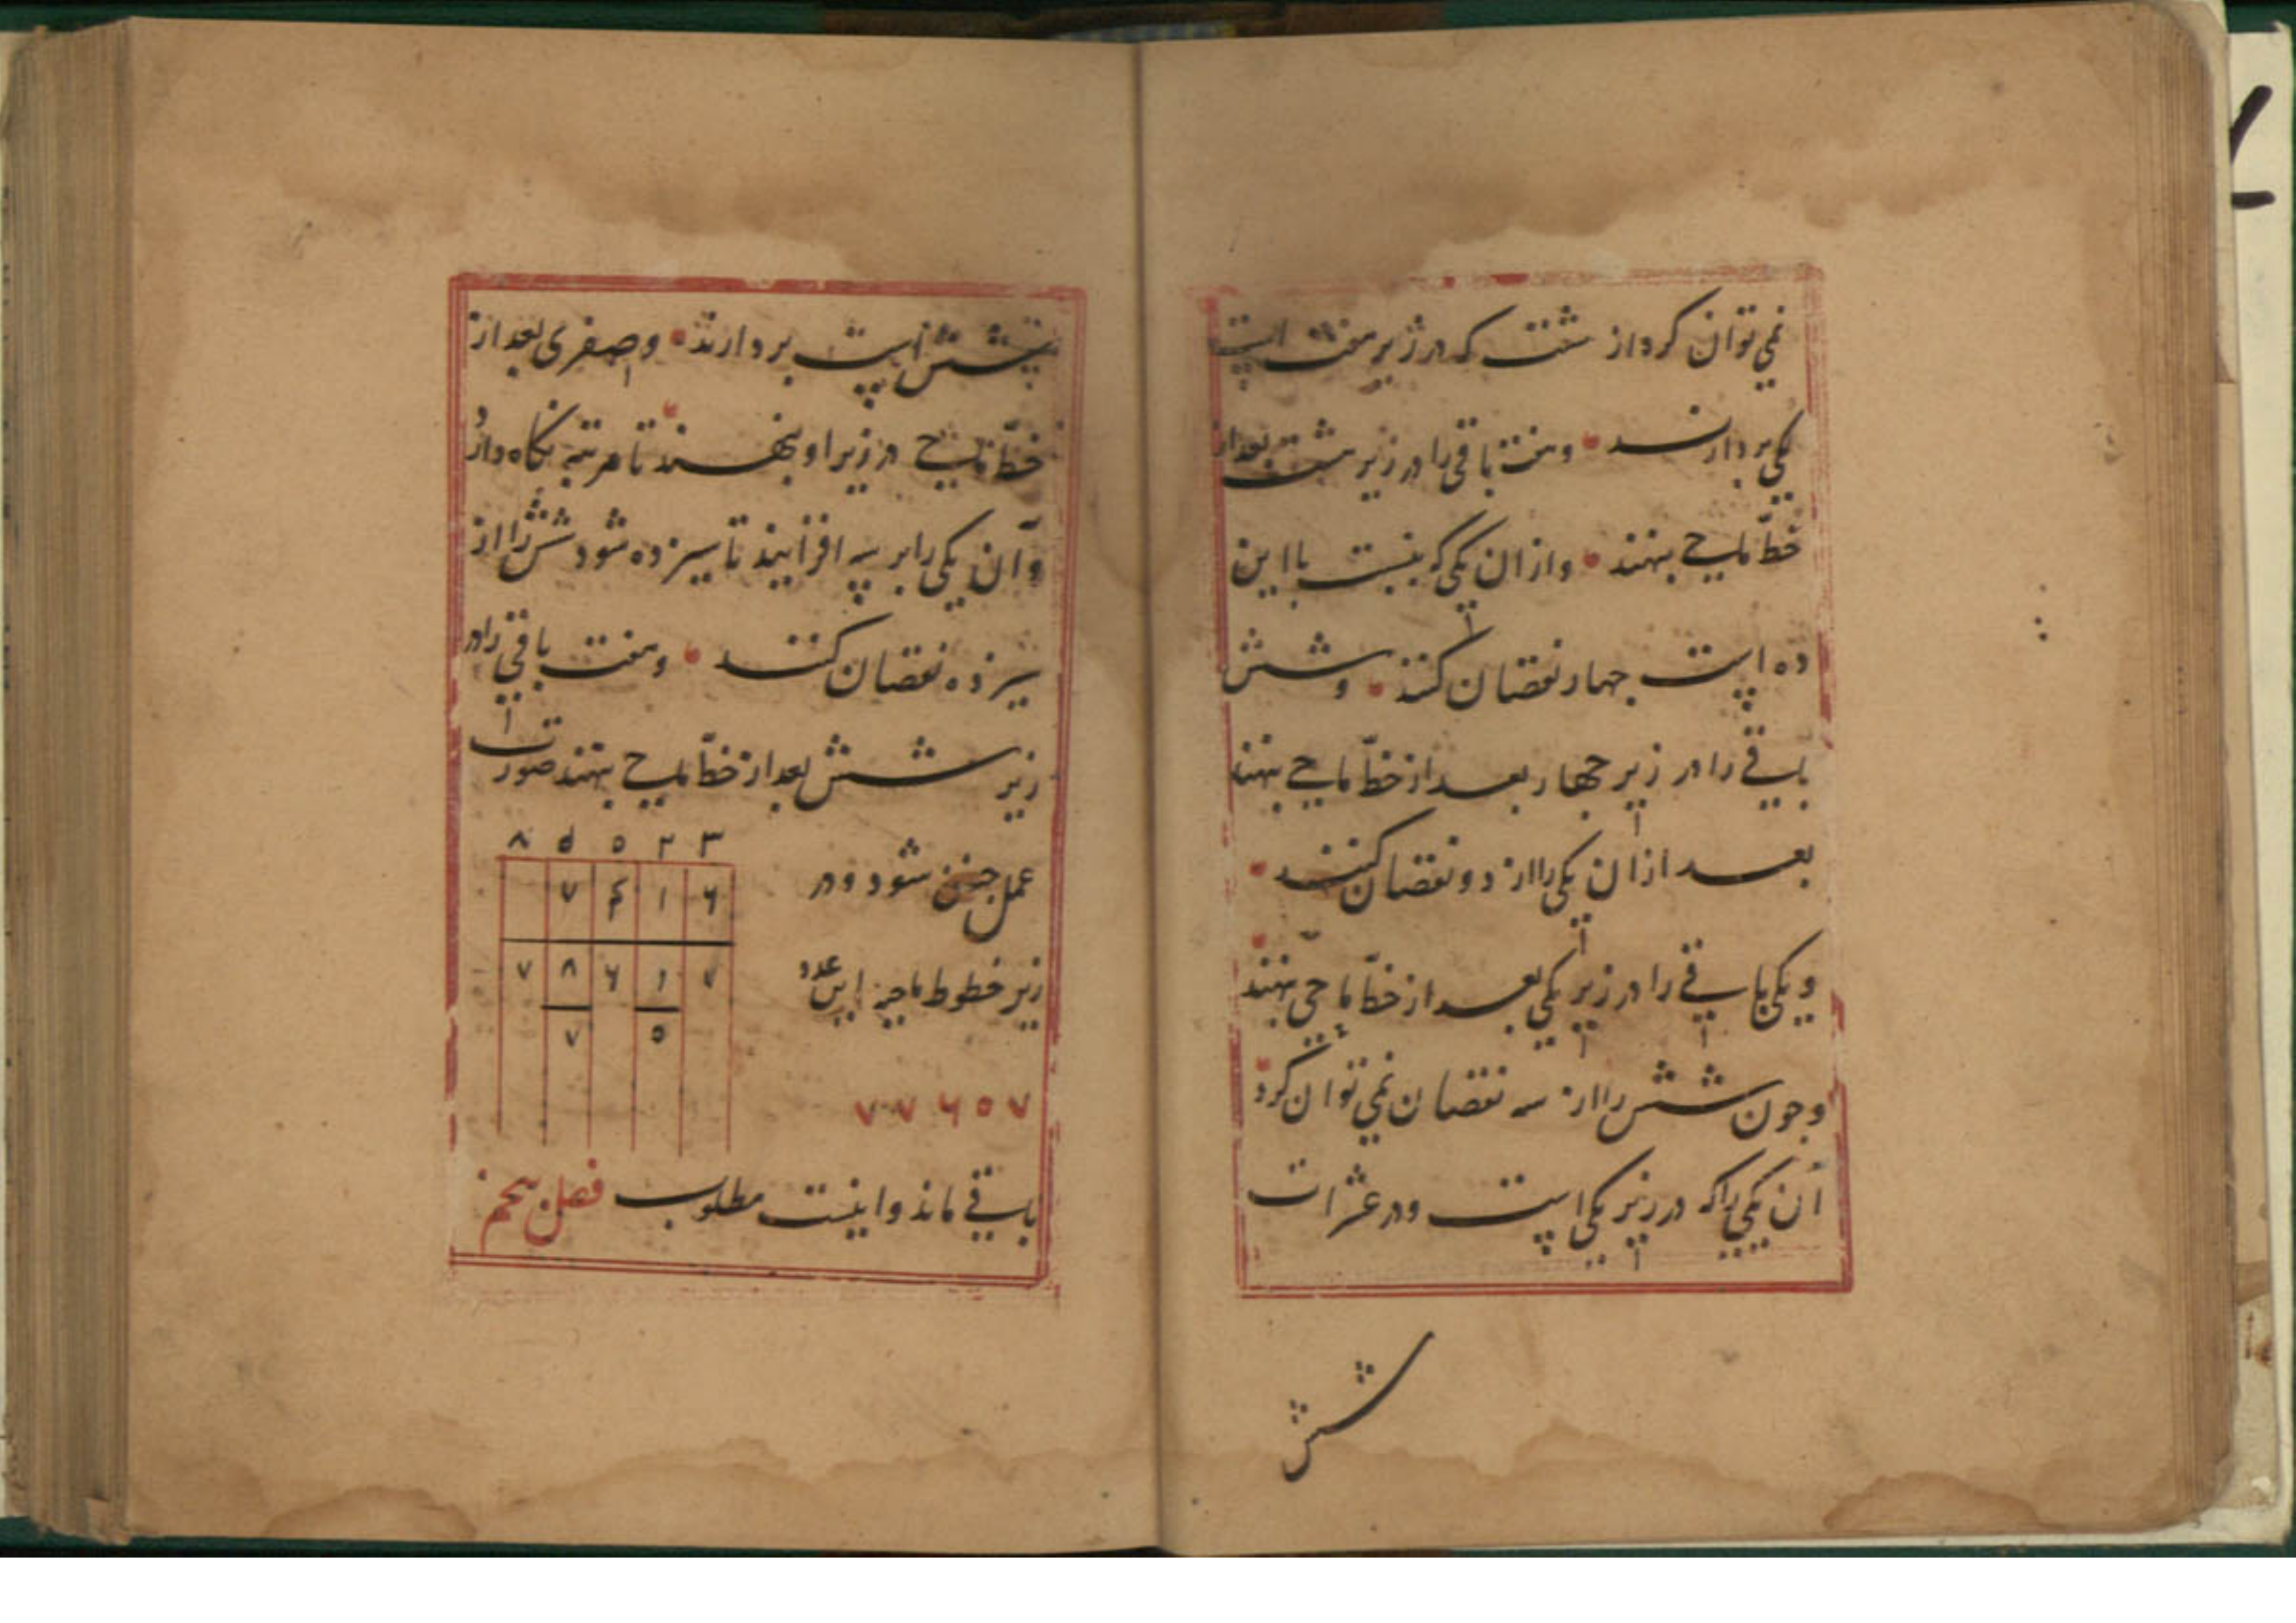 نمی توان کرد از هشت که در زیر هفت است
یکی بردارند و هفت باقی را در زیر هشت بعد از
خطّ ماحی بنهند و از ان یکی که بنسبت با این
ده است چهار نقصان کنند و شش
باقی را در زیر چهار بعد از خطّ ماحی بنهند
بعد از ان یکی را از دو نقصان کنند
و یکی باقی را در زیر یکی بعد از خطّ ماحی بنهند
و چون شش را از سه نقصان نمی توان کرد
آن یکی را که در زیر یکی است و در عشرات
شش
شش است بردارند و صفری بعد از
خطّ ماحی در زیر او بنهند تا مرتبه نگاه دارد
و آن یکی را بر سه افزایند تا سیزده شود شش را از
سیزده نقصان کنند و هفت باقی را در
زیر شش بعد از خطّ ماحی بنهند صورت
عمل چنین شود و در
۸ ۵ ۵ ۲ ۳
۷ ۴ ۱ ۶
زیر خطوط ماحیه این عدد
۷ ۸ ۶ ۱ ۷
۷ ۵
۷ ۷ ۶ ۵ ۷
باقی ماند و اینست مطلوب فصل پنجم